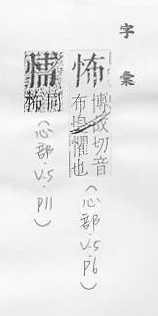 字彙
怖 博故切音
布惶懼也
(心部.V.5.P6)
㥤
同怖
(心部.V.5.P11)